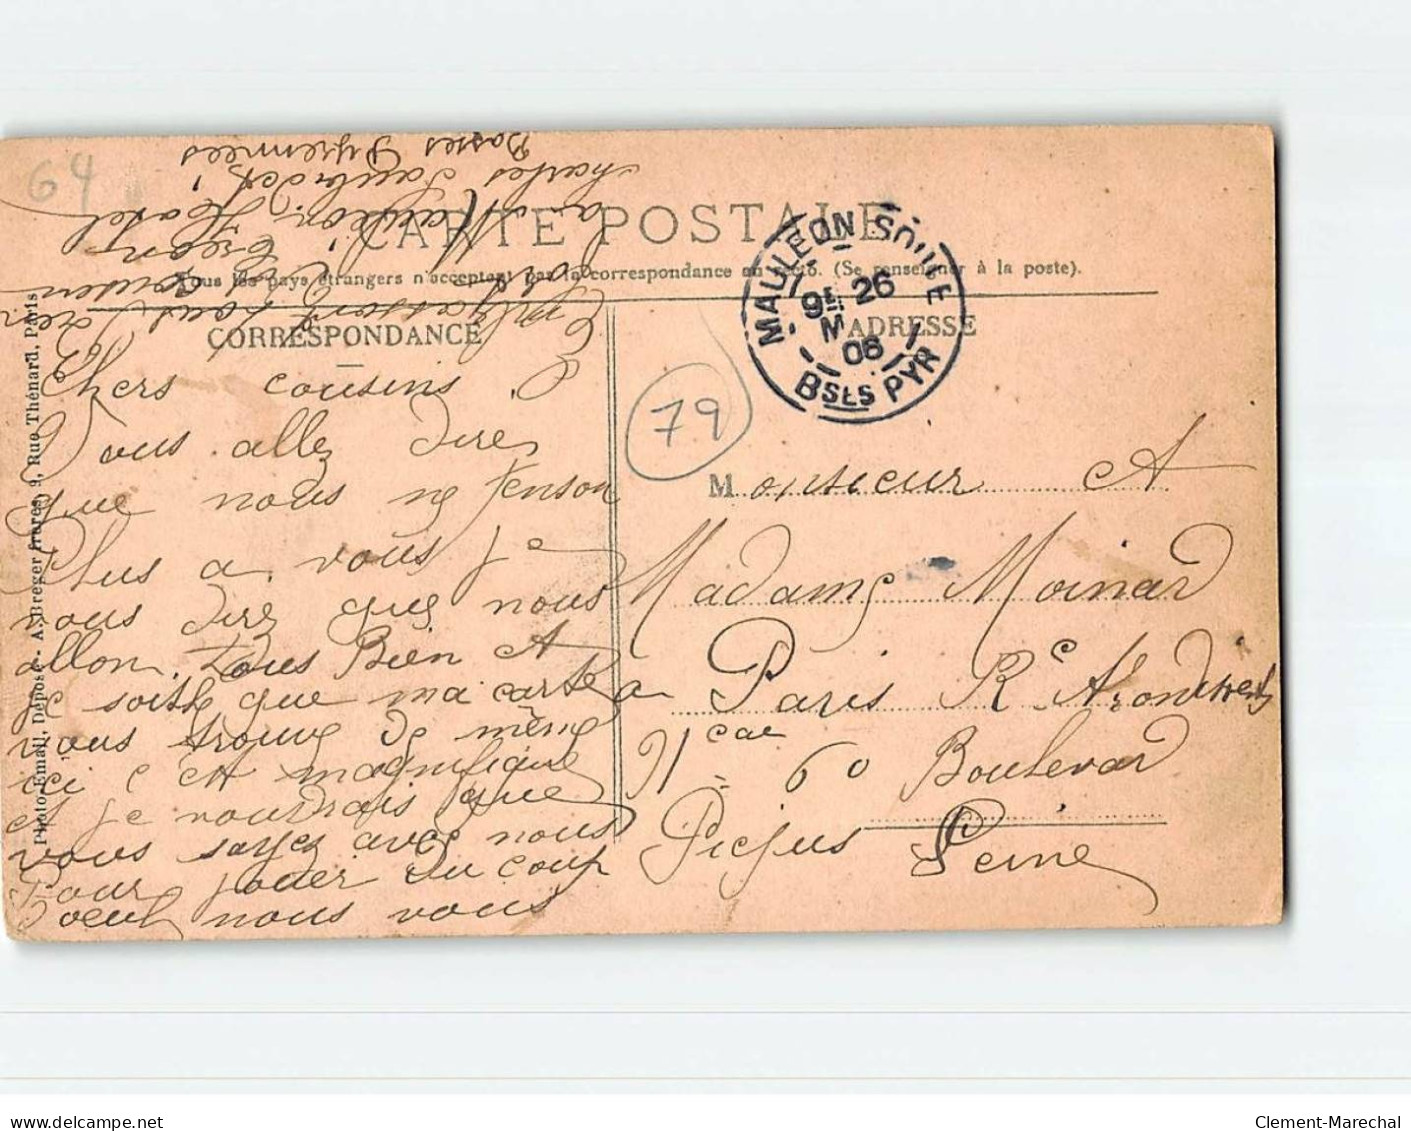 64
CARTE POSTALE
Tous les pays étrangers n'acceptent pas la correspondance au recto. (Se renseigner à la poste).
CORRESPONDANCE
ADRESSE
MAULÉON SOULE
9E 26
M
06
BSES PYR
79
Photo-Email, Déposé - A. Breger frères, 9, Rue Thénard, Paris
Chers cousins
Vous allez dire
que nous ne penson
Plus a vous je
vous dire que nous
allon tous Bien et
je soite que ma carte
vous trouve de même
ici c et magnifique
et je voudrais que
vous soyez avec nous
Pour jouer du coup
nous vous
Embrasson tous bien
cousin
a Mauléon
charles
Basses Pyrennées
Monsieur et
Madame Moinard
a Paris
Boulevard
60
Picpus Seine
Clement-Marechal